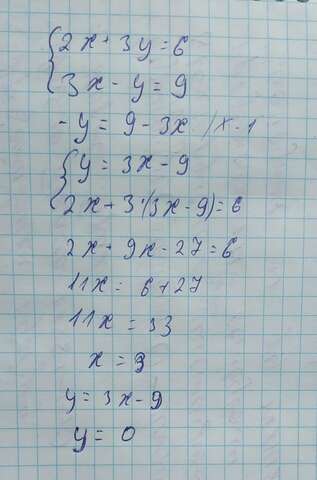 2x + 3y = 6
3x - y = 9
-y = 9 - 3x /x -1
y = 3x - 9
2x + 3·(3x - 9) = 6
2x + 9x - 27 = 6
11x = 6 + 27
11x = 33
x = 3
y = 3x - 9
y = 0